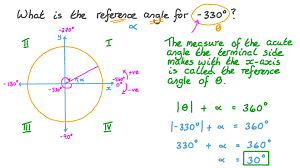 What is the reference angle for -330° ?
α
θ
II
I
III
IV
-270°
y
-180°
-360°
0°
x
+ve
-ve
-330°
α
-90°
The measure of the acute
angle the terminal side
makes with the x-axis
is called the reference
angle of θ.
|θ| + α = 360°
|-330°| + α = 360°
330° + α = 360°
α = 30°